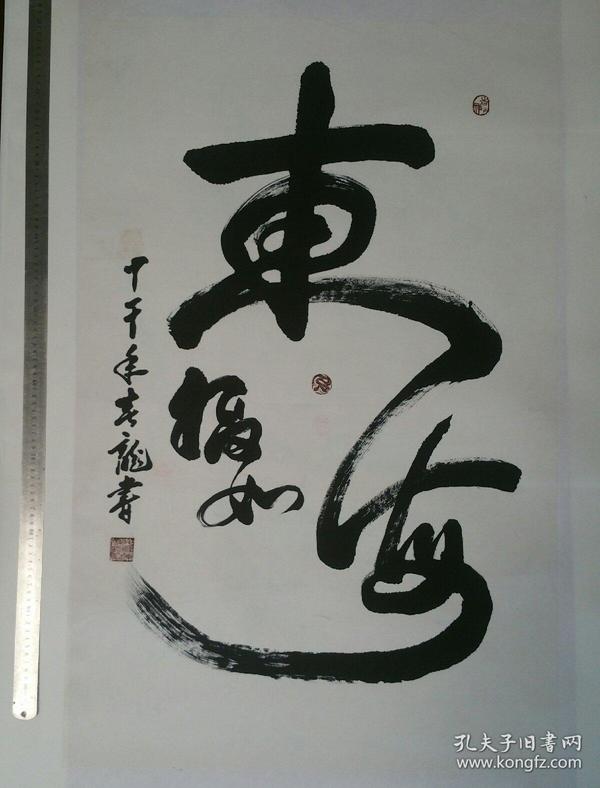 東海
福如
年 龍書
孔夫子旧書网
www.kongfz.com